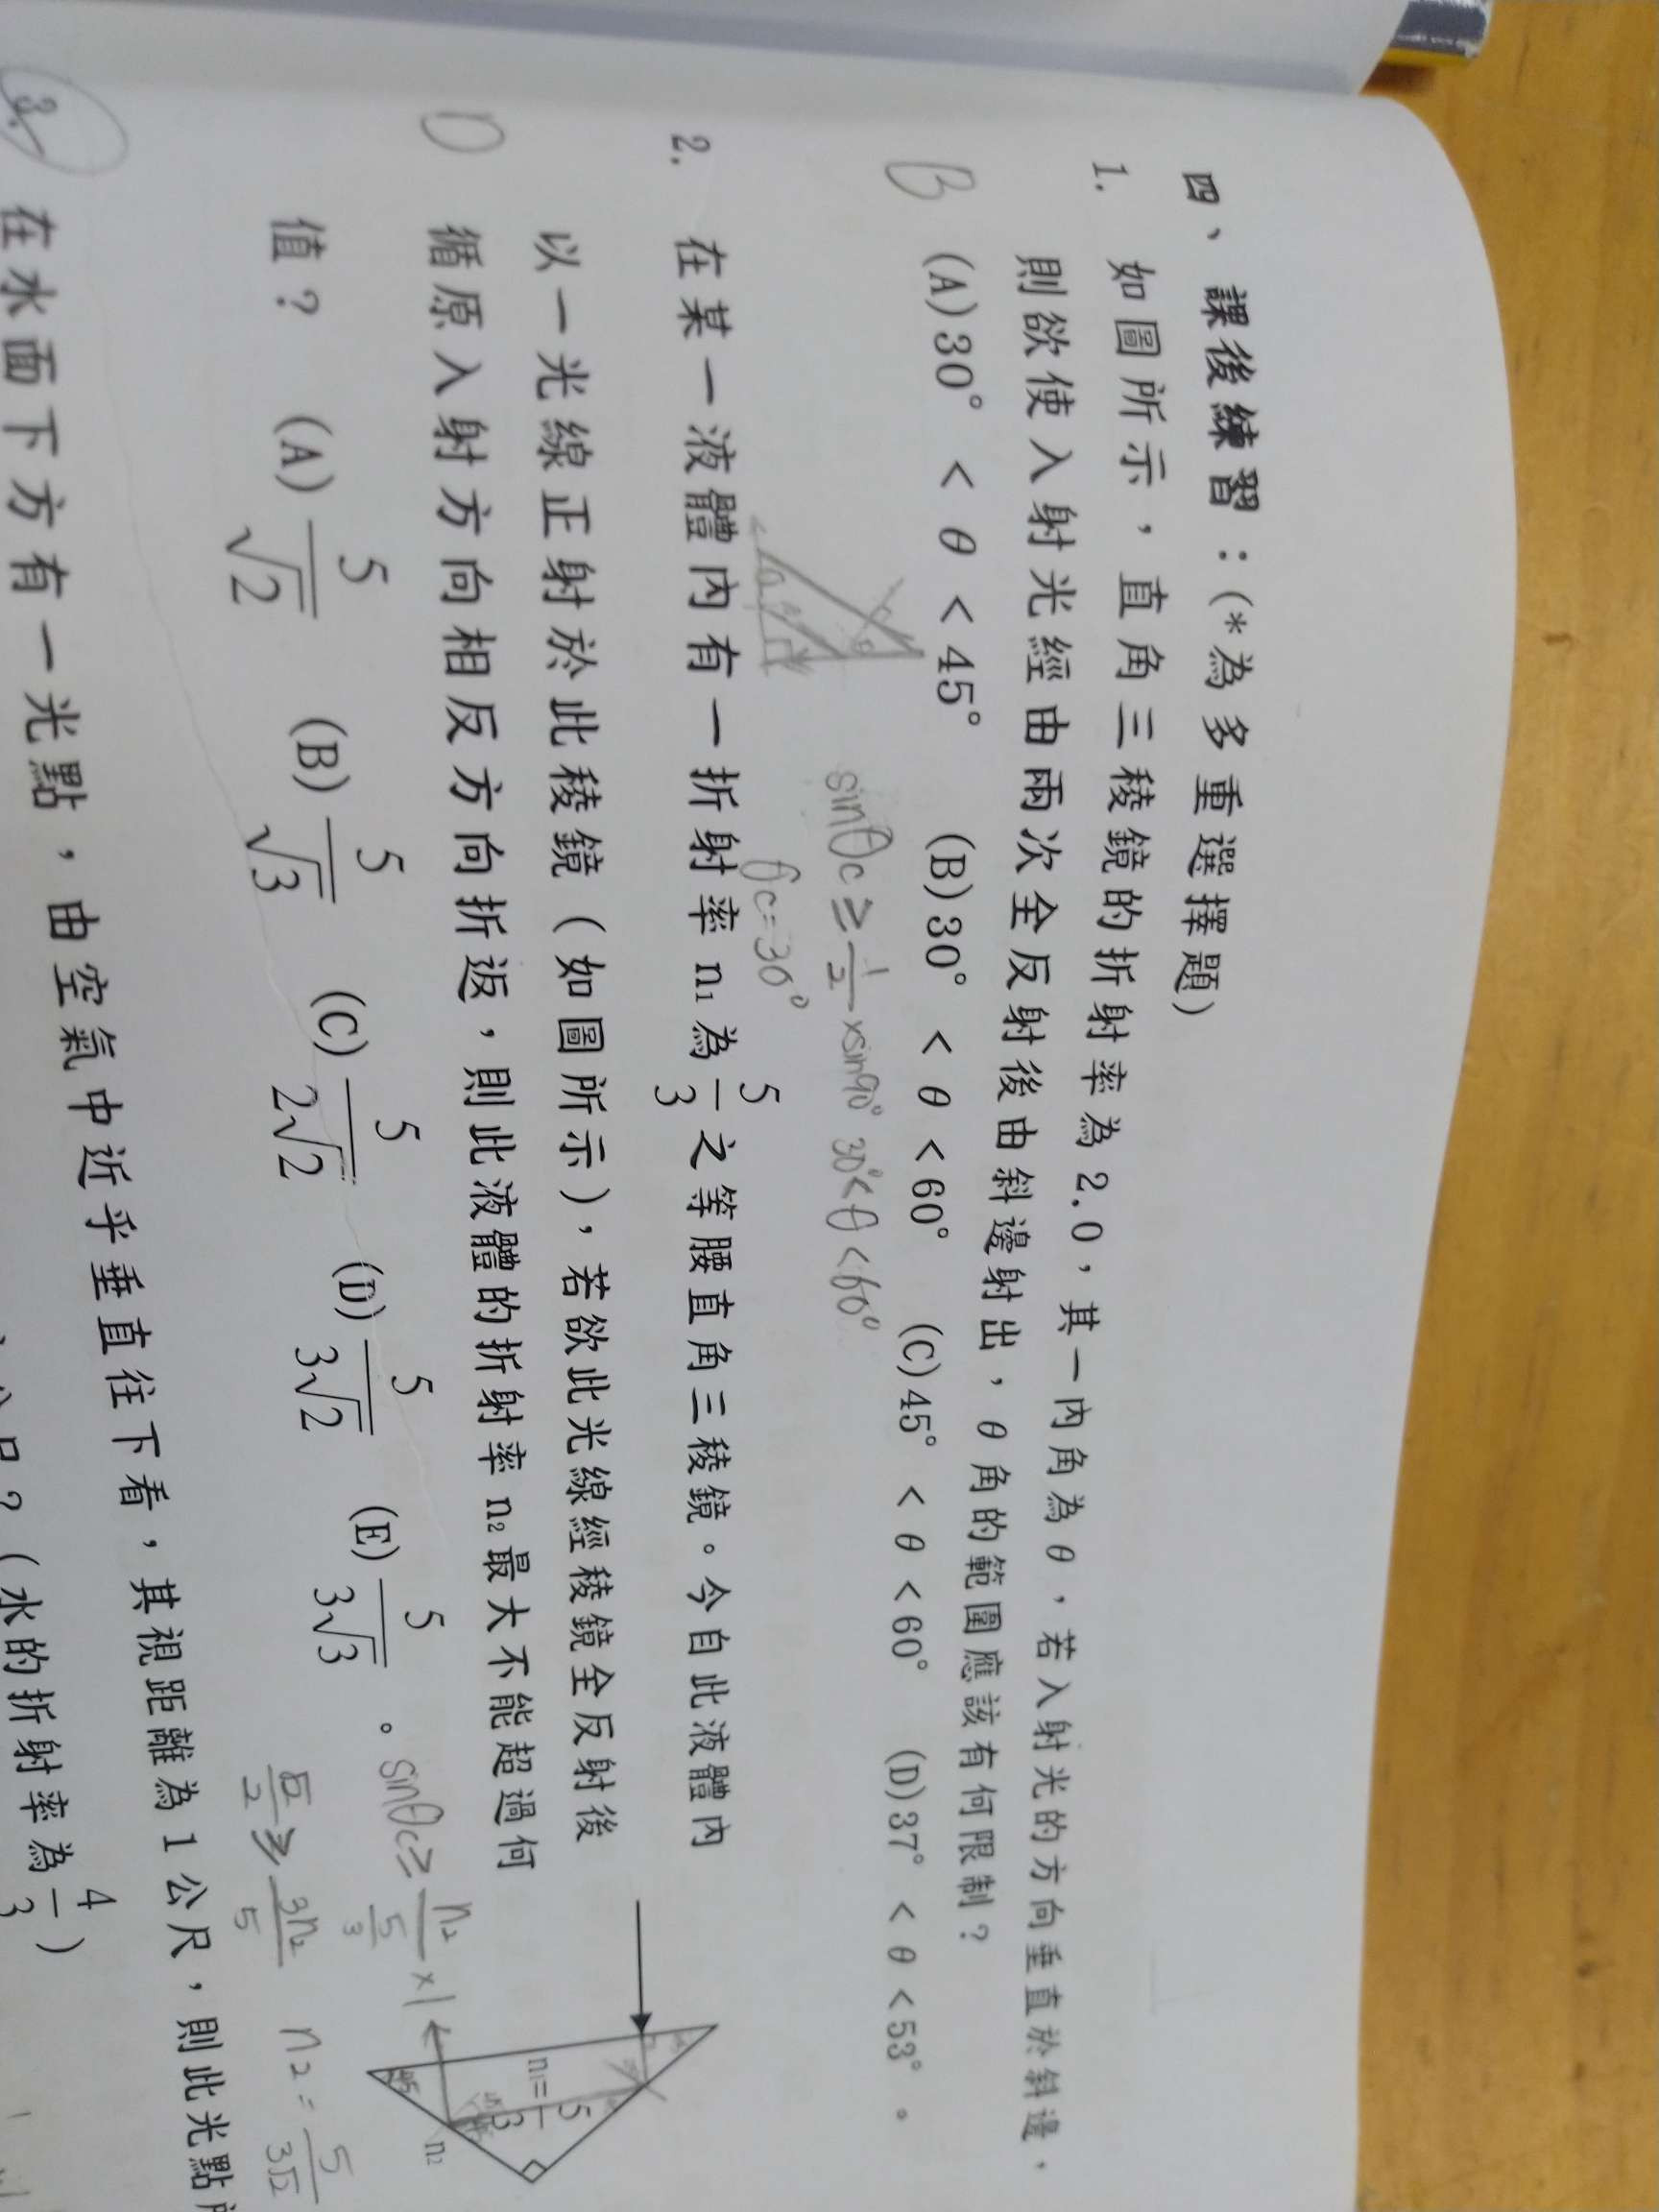 四、課後練習：(*為多重選擇題)
1. 如圖所示，直角三稜鏡的折射率為2.0，其一內角為θ，若入射光的方向垂直於斜邊，
則欲使入射光經由兩次全反射後由斜邊射出，θ角的範圍應該有何限制？
B (A)30° < θ <45° (B)30° < θ <60° (C)45° < θ <60° (D)37° < θ <53° 。
sinθc ≥ 1/2 ×sin90° 30°<θ<60°
θc=30°
2. 在某一液體內有一折射率 n₁為 5/3 之等腰直角三稜鏡。今自此液體內
以一光線正射於此稜鏡（如圖所示），若欲此光線經稜鏡全反射後
D 循原入射方向相反方向折返，則此液體的折射率 n₂最大不能超過何
值？ (A) 5/√2 (B) 5/√3 (C) 5/2√2 (D) 5/3√2 (E) 5/3√3 。
sinθc ≥ n₂/(5/3) ×1
√2/2 ≥ 3n₂/5 n₂ = 5/3√2
n₁= 5/3
n₂
45
3. 在水面下方有一光點，由空氣中近乎垂直往下看，其視距離為1公尺，則此光點
？（水的折射率為 4/3 ）